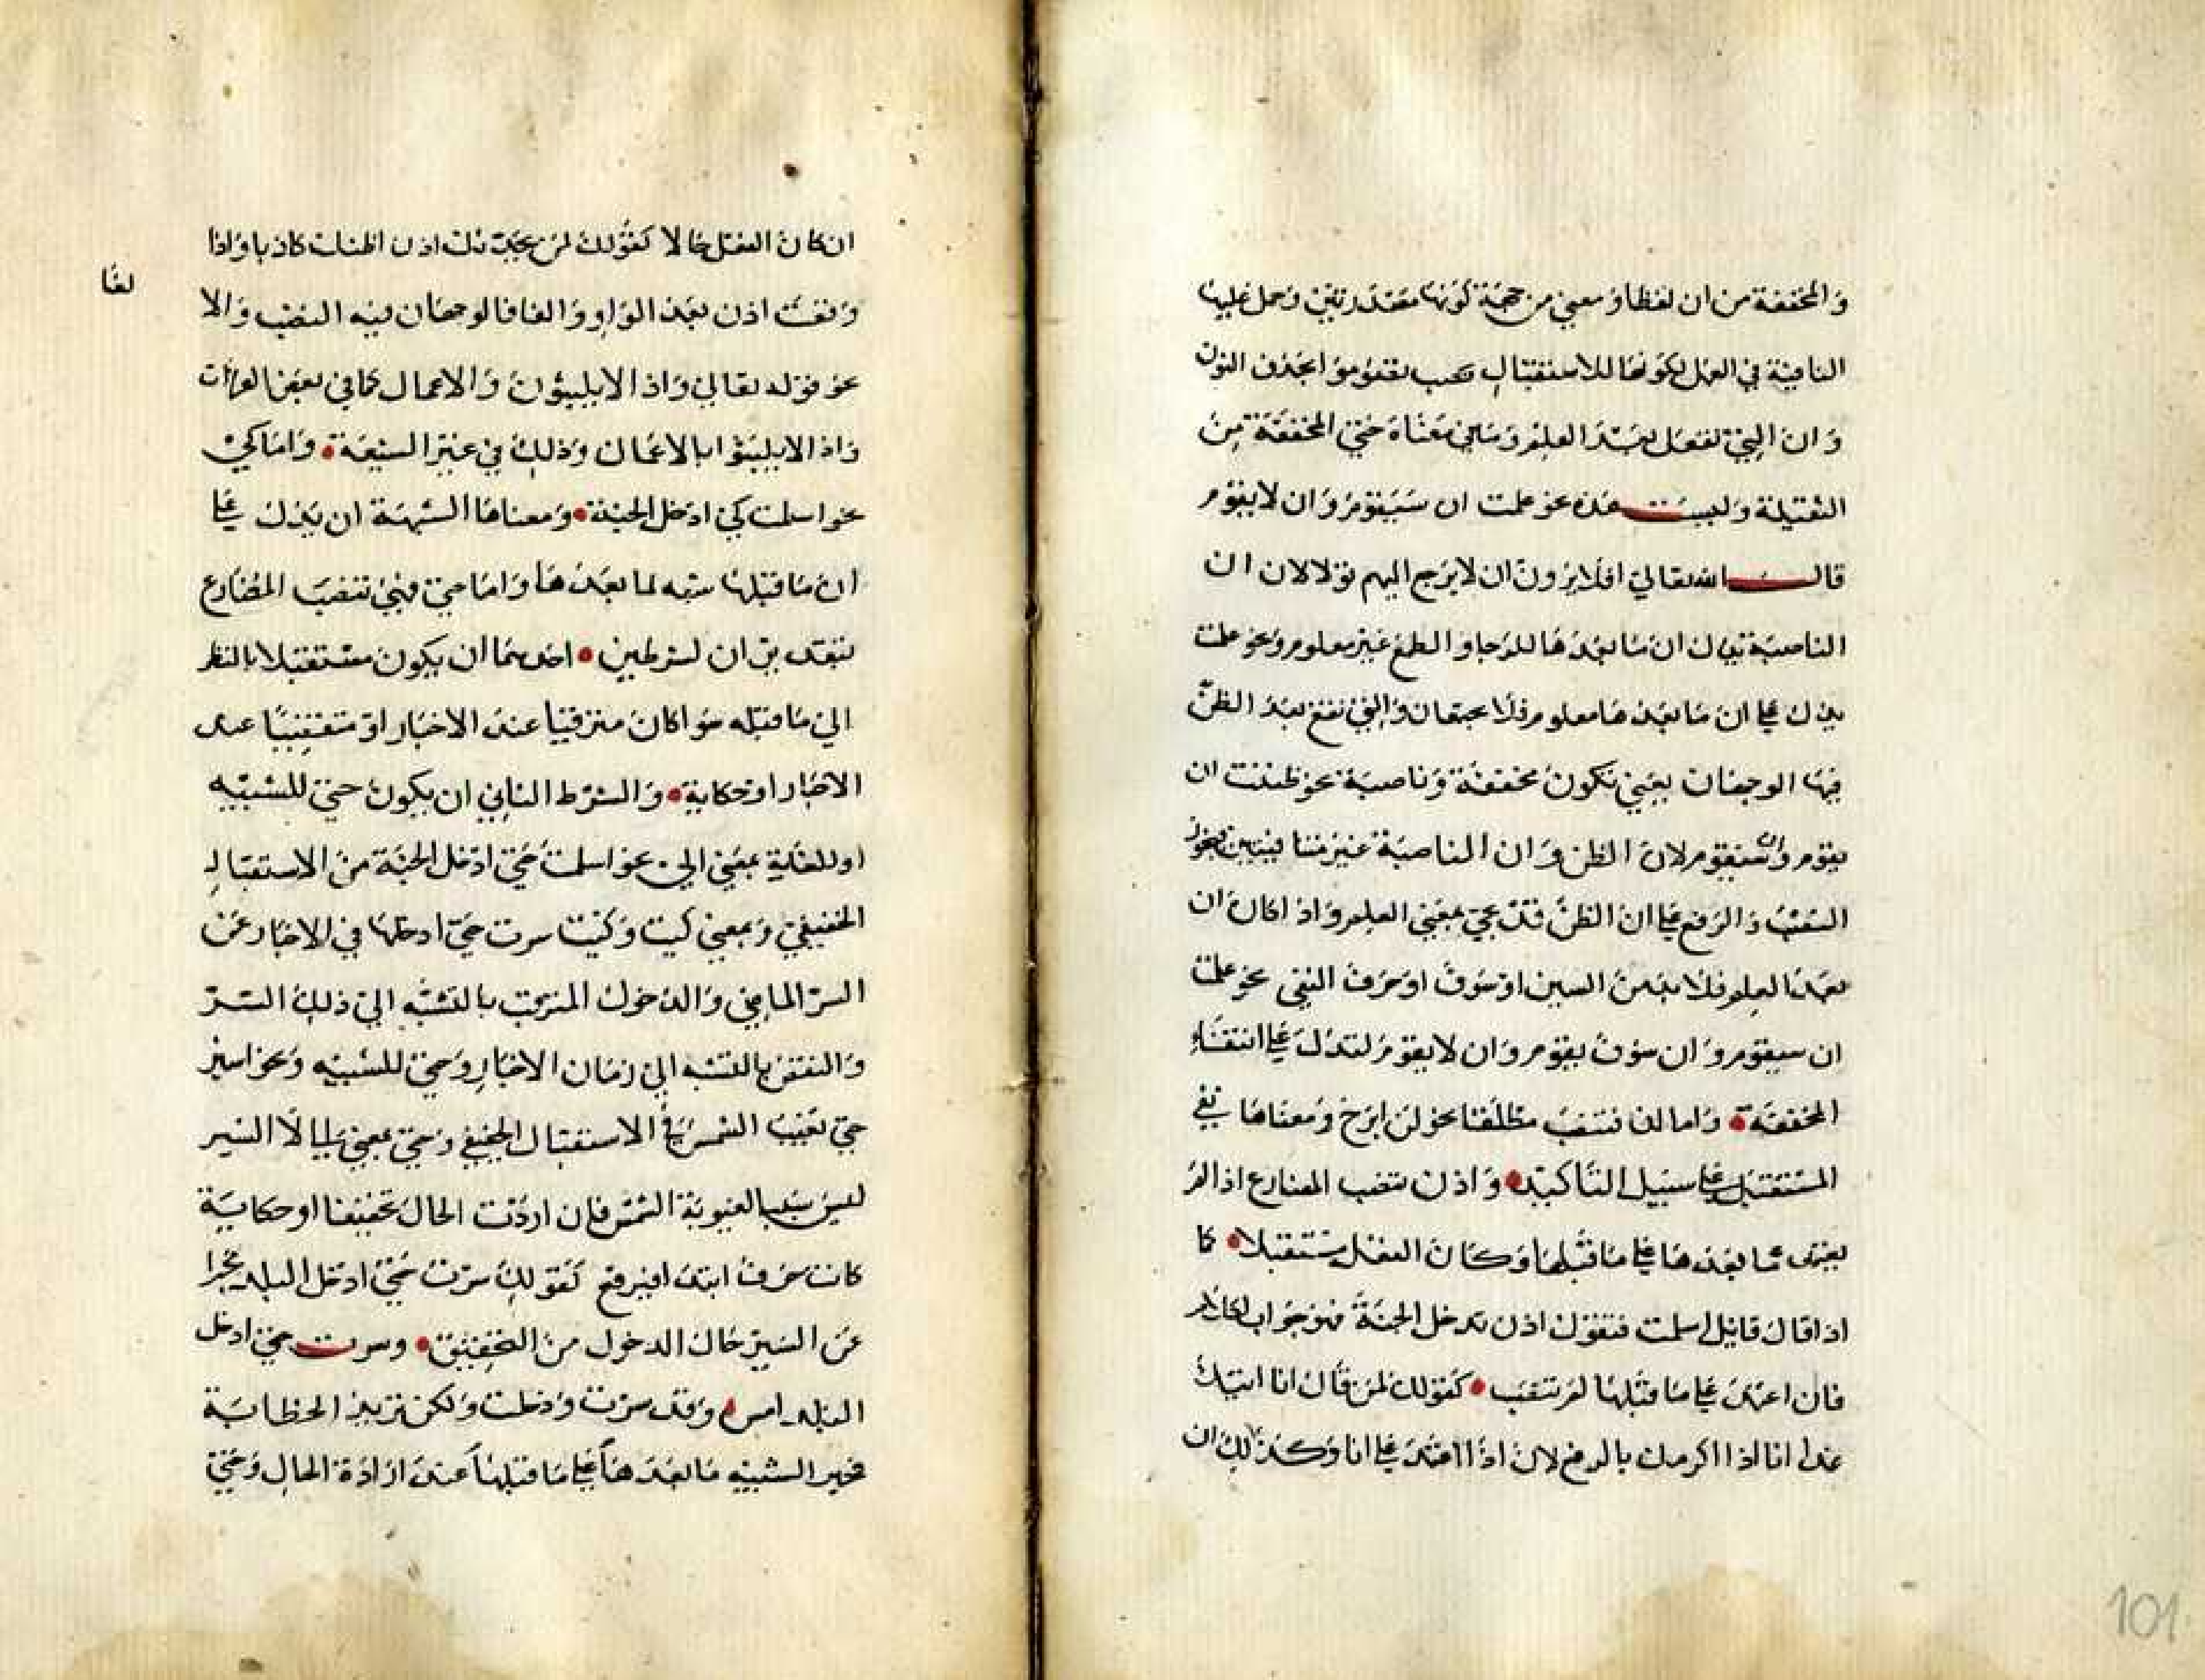 والمخففة من ان لفظا ومعني من جهة كونها مقدرتين وحمل عليها
النافية في العمل لكونها للاستقبال تقوموا بحذف النون
وان التي تفعل بعد العلم وما في معناه هي المخففة من
الثقيلة وليست هذه نحو علمت ان سيقوم وان لا يقوم
قال الله تعالي افلا يرون ان لا يرجع اليهم قولا لان ان
الناصبة تدل ان ما بعدها للرجا والطمع غير معلوم ونحو علمت
يدل علي ان ما بعدها معلوم فلا يجتمعان والتي تقع بعد الظن
فيها الوجهان يعني تكون مخففة وناصبة نحو ظننت ان
يقوم وان سيقوم لان الظن وان الناصبة غير متنافيتين فيجوز
النصب والرفع علي ان الظن قد يجي بمعني العلم واذا كان ان
بعد العلم فلا بد من السين او سوف او حرف النفي نحو علمت
ان سيقوم وان سوف يقوم وان لا يقوم لتدل علي انتفاء
المخففة واما لن فتنصب مطلقا نحو لن ابرح ومعناها نفي
المستقبل علي سبيل التاكيد واذن تنصب المضارع اذا لم
يعتمد ما بعدها علي ما قبلها وكان الفعل مستقبلا كما
اذا قال قايل اسلمت فتقول اذن تدخل الجنة فهو جواب لكلام
فان اعتمد علي ما قبلها لم تنصب كقولك لمن قال انا اتيك
غدا انا اذا اكرمك بالرفع لان اذا اعتمد علي انا وكذلك ان
ان كان الفعل حالا كقولك لمن يحدثك اذن اظنك كاذبا واذا
وقعت اذن بعد الواو والفا فالوجهان فيه النصب والا
لغا
نحو قوله تعالي واذا لا يلبثون والاعمال كما في بعض القراات
واذا لا يلبثوا بالاعمال وذلك في غير السبعة واما كي
نحو اسلمت كي ادخل الجنة ومعناها السببية ان يدل علي
ان ما قبلها سببه لما بعدها واما حتي فهي تنصب المضارع
بتقدير ان لشرطين احدهما ان يكون مستقبلا بالنظر
الي ما قبله سوا كان مترقبا عند الاخبار او متقضيا عند
الاخبار او حكاية والشرط الثاني ان يكون حتي للسببيه
او للغاية بمعني الي نحو اسلمت حتي ادخل الجنة من الاستقبال
الحقيقي وبمعني كيت وكيت سرت حتي ادخلها في الاخبار عن
السر الماضي والدخول المترقب بالنسبة الي ذلك السر
بالنسبه الي زمان الاخبار وحتي للسببيه ونحو اسير
حتي تغيب الشمس في الاستقبال الحقيقي وحتي بمعني الي لان السير
ليس سببا لغيبوبة الشمس فان اردت الحال تحقيقا او حكاية
كانت حرف ابتداء فيرفع كقولك سرت حتي ادخل البلد مخبرا
عن السير حال الدخول من التحقيق وسرت حتي ادخل
البلد امس وقد سرت ودخلت ولكن تريد
السببيه ما بعدها علي ما قبلها عند ارادة الحال وحتي
101